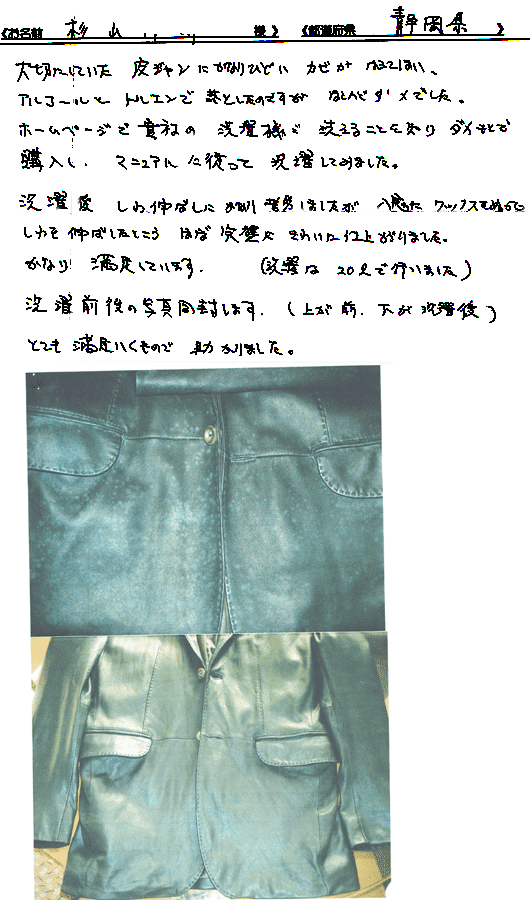 《お名前 杉山 様》 《都道府県 静岡県 》
大切にしていた 皮ジャンにかなりひどい カビが はえてしまい、
アルコールと トルエンで 落としたのですが ほとんどダメでした。
ホームページで 貴社の 洗濯機で 洗えることを知り ダイヤモンドで
購入し、 マニュアルに従って 洗濯してみました。
洗濯後 しわ伸ばしに かなり 苦労しましたが ワックスをぬって
しわを 伸ばしたところ ほぼ 完璧に きれいに仕上がりました。
かなり 満足しています. (洗濯は 20ℓで行いました)
洗濯前後の写真同封します. (上が前. 下が洗濯後)
とても 満足いくもので 助かりました。